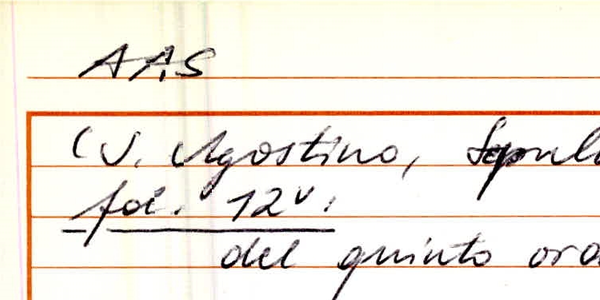 AAS
(V. Agostino, Sepul
fol. 12v.
del quinto ord